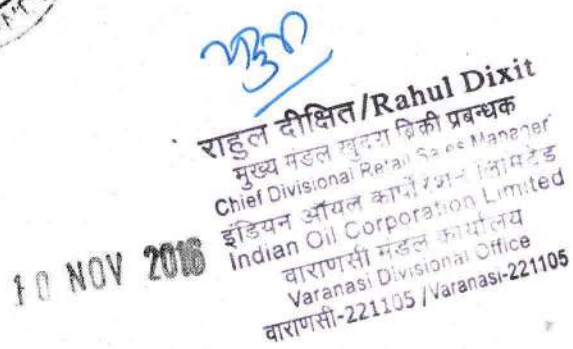 राहुल दीक्षित/Rahul Dixit
मुख्य मंडल खुदरा बिक्री प्रबन्धक
Chief Divisional Retail Sales Manager
इंडियन ऑयल कार्पोरेशन लिमिटेड
Indian Oil Corporation Limited
वाराणसी मंडल कार्यालय
Varanasi Divisional Office
वाराणसी-221105 /Varanasi-221105
10 NOV 2016